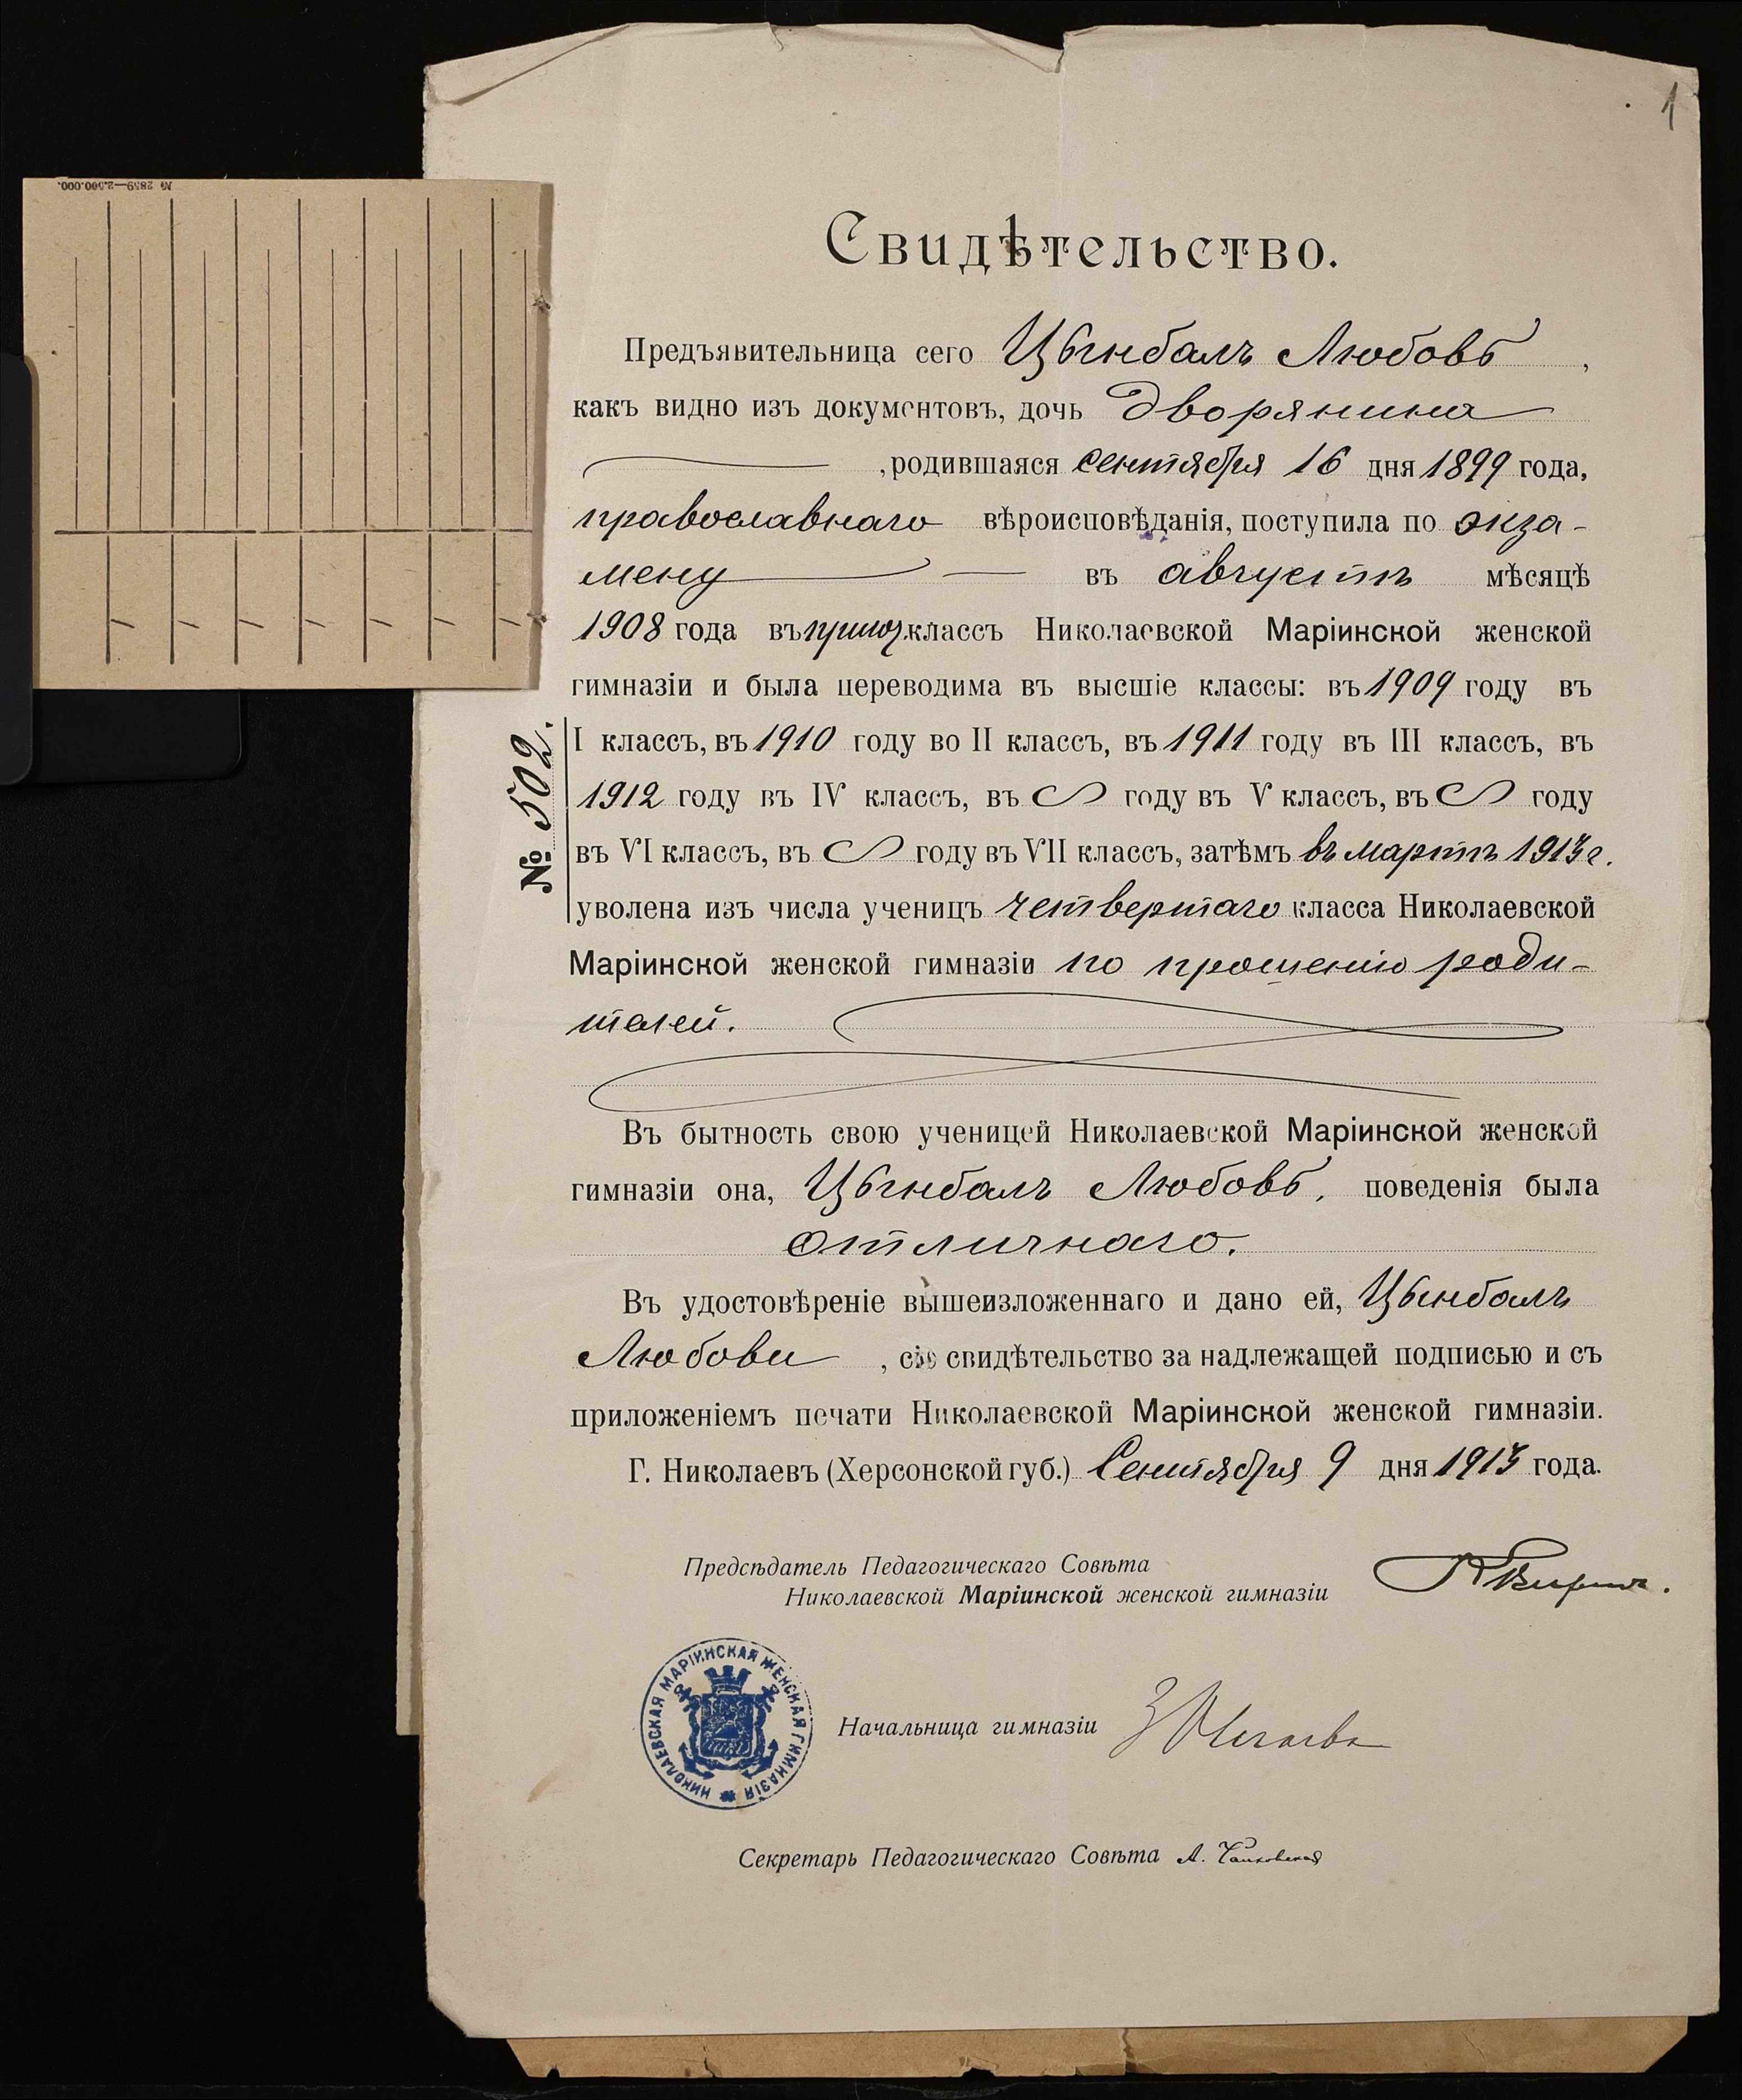 1
№ 2859—2.500.000.
Свидѣтельство.
Предъявительница сего Цынбалъ Любовь,
какъ видно изъ документовъ, дочь дворянина
, родившаяся сентября 16 дня 1899 года,
православнаго вѣроисповѣданія, поступила по экза-
мену въ августѣ мѣсяцѣ
1908 года въ пригот. классъ Николаевской Маріинской женской
гимназіи и была переводима въ высшіе классы: въ 1909 году въ
I классъ, въ 1910 году во II классъ, въ 1911 году въ III классъ, въ
1912 году въ IV классъ, въ году въ V классъ, въ году
въ VI классъ, въ году въ VII классъ, затѣмъ въ мартѣ 1913 г.
уволена изъ числа ученицъ четвертаго класса Николаевской
Маріинской женской гимназіи по прошенію роди-
телей.
№ 502.
Въ бытность свою ученицей Николаевской Маріинской женской
гимназіи она, Цынбалъ Любовь, поведенія была
отличнаго.
Въ удостовѣреніе вышеизложеннаго и дано ей, Цынбалъ
Любови, сіе свидѣтельство за надлежащей подписью и съ
приложеніемъ печати Николаевской Маріинской женской гимназіи.
Г. Николаевъ (Херсонской губ.) Сентября 9 дня 1913 года.
Предсѣдатель Педагогическаго Совѣта
Николаевской Маріинской женской гимназіи
НИКОЛАЕВСКАЯ МАРІИНСКАЯ ЖЕНСКАЯ ГИМНАЗІЯ
Начальница гимназіи
Секретарь Педагогическаго Совѣта А.